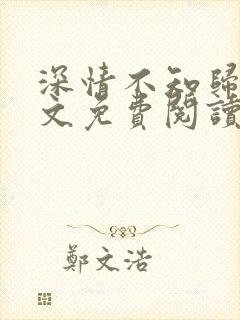 深情不知歸
文免費閱讀
鄭文浩